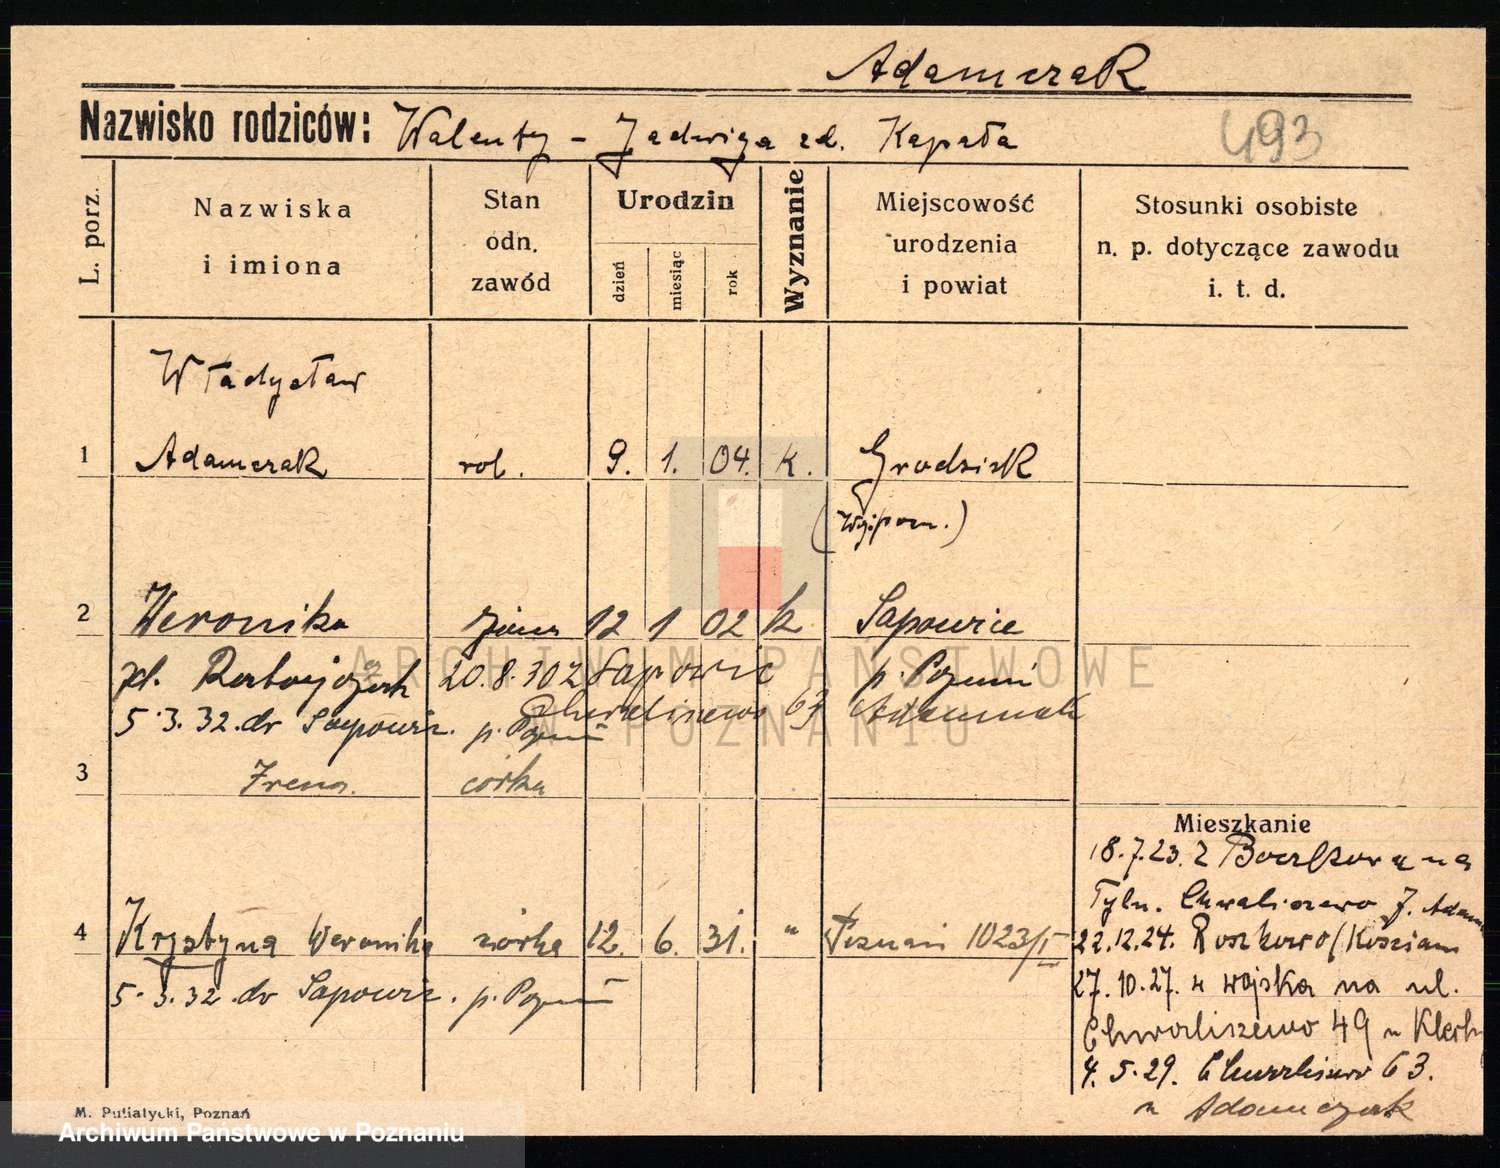 Adamczak
Nazwisko rodziców: Walenty - Jadwiga zd. Kapała
493
L. porz.
Nazwiska
i imiona
Stan
odn.
zawód
Urodzin
dzień
miesiąc
rok
Wyznanie
Miejscowość
urodzenia
i powiat
Stosunki osobiste
n. p. dotyczące zawodu
i. t. d.
Władysław
1 Adamczak rob. 9. 1. 04. k. Grodzisk
2 Weronika żona 12 1 02 k Sapowice
zd. 20.8.30 z Sapowic p. Poznań
5.3.32. do Sapowic. p. Poznań Chwaliszewo 63 Adamczak
3 Irena córka
Mieszkanie
18.7.23. z na
Tyln. Chwaliszewo J. Adam
4 Krystyna Weronika córka 12. 6. 31. " Poznań 1023/I
22.12.24. Roszkowo/Kościan
5.3.32. do Sapowic. p. Poznań
27.10.27. z wojska na ul.
Chwaliszewo 49 u
4.5.29. Chwaliszewo 63.
u Adamczak
M. Putiatycki, Poznań
Archiwum Państwowe w Poznaniu
ARCHIWUM PAŃSTWOWE
W POZNANIU